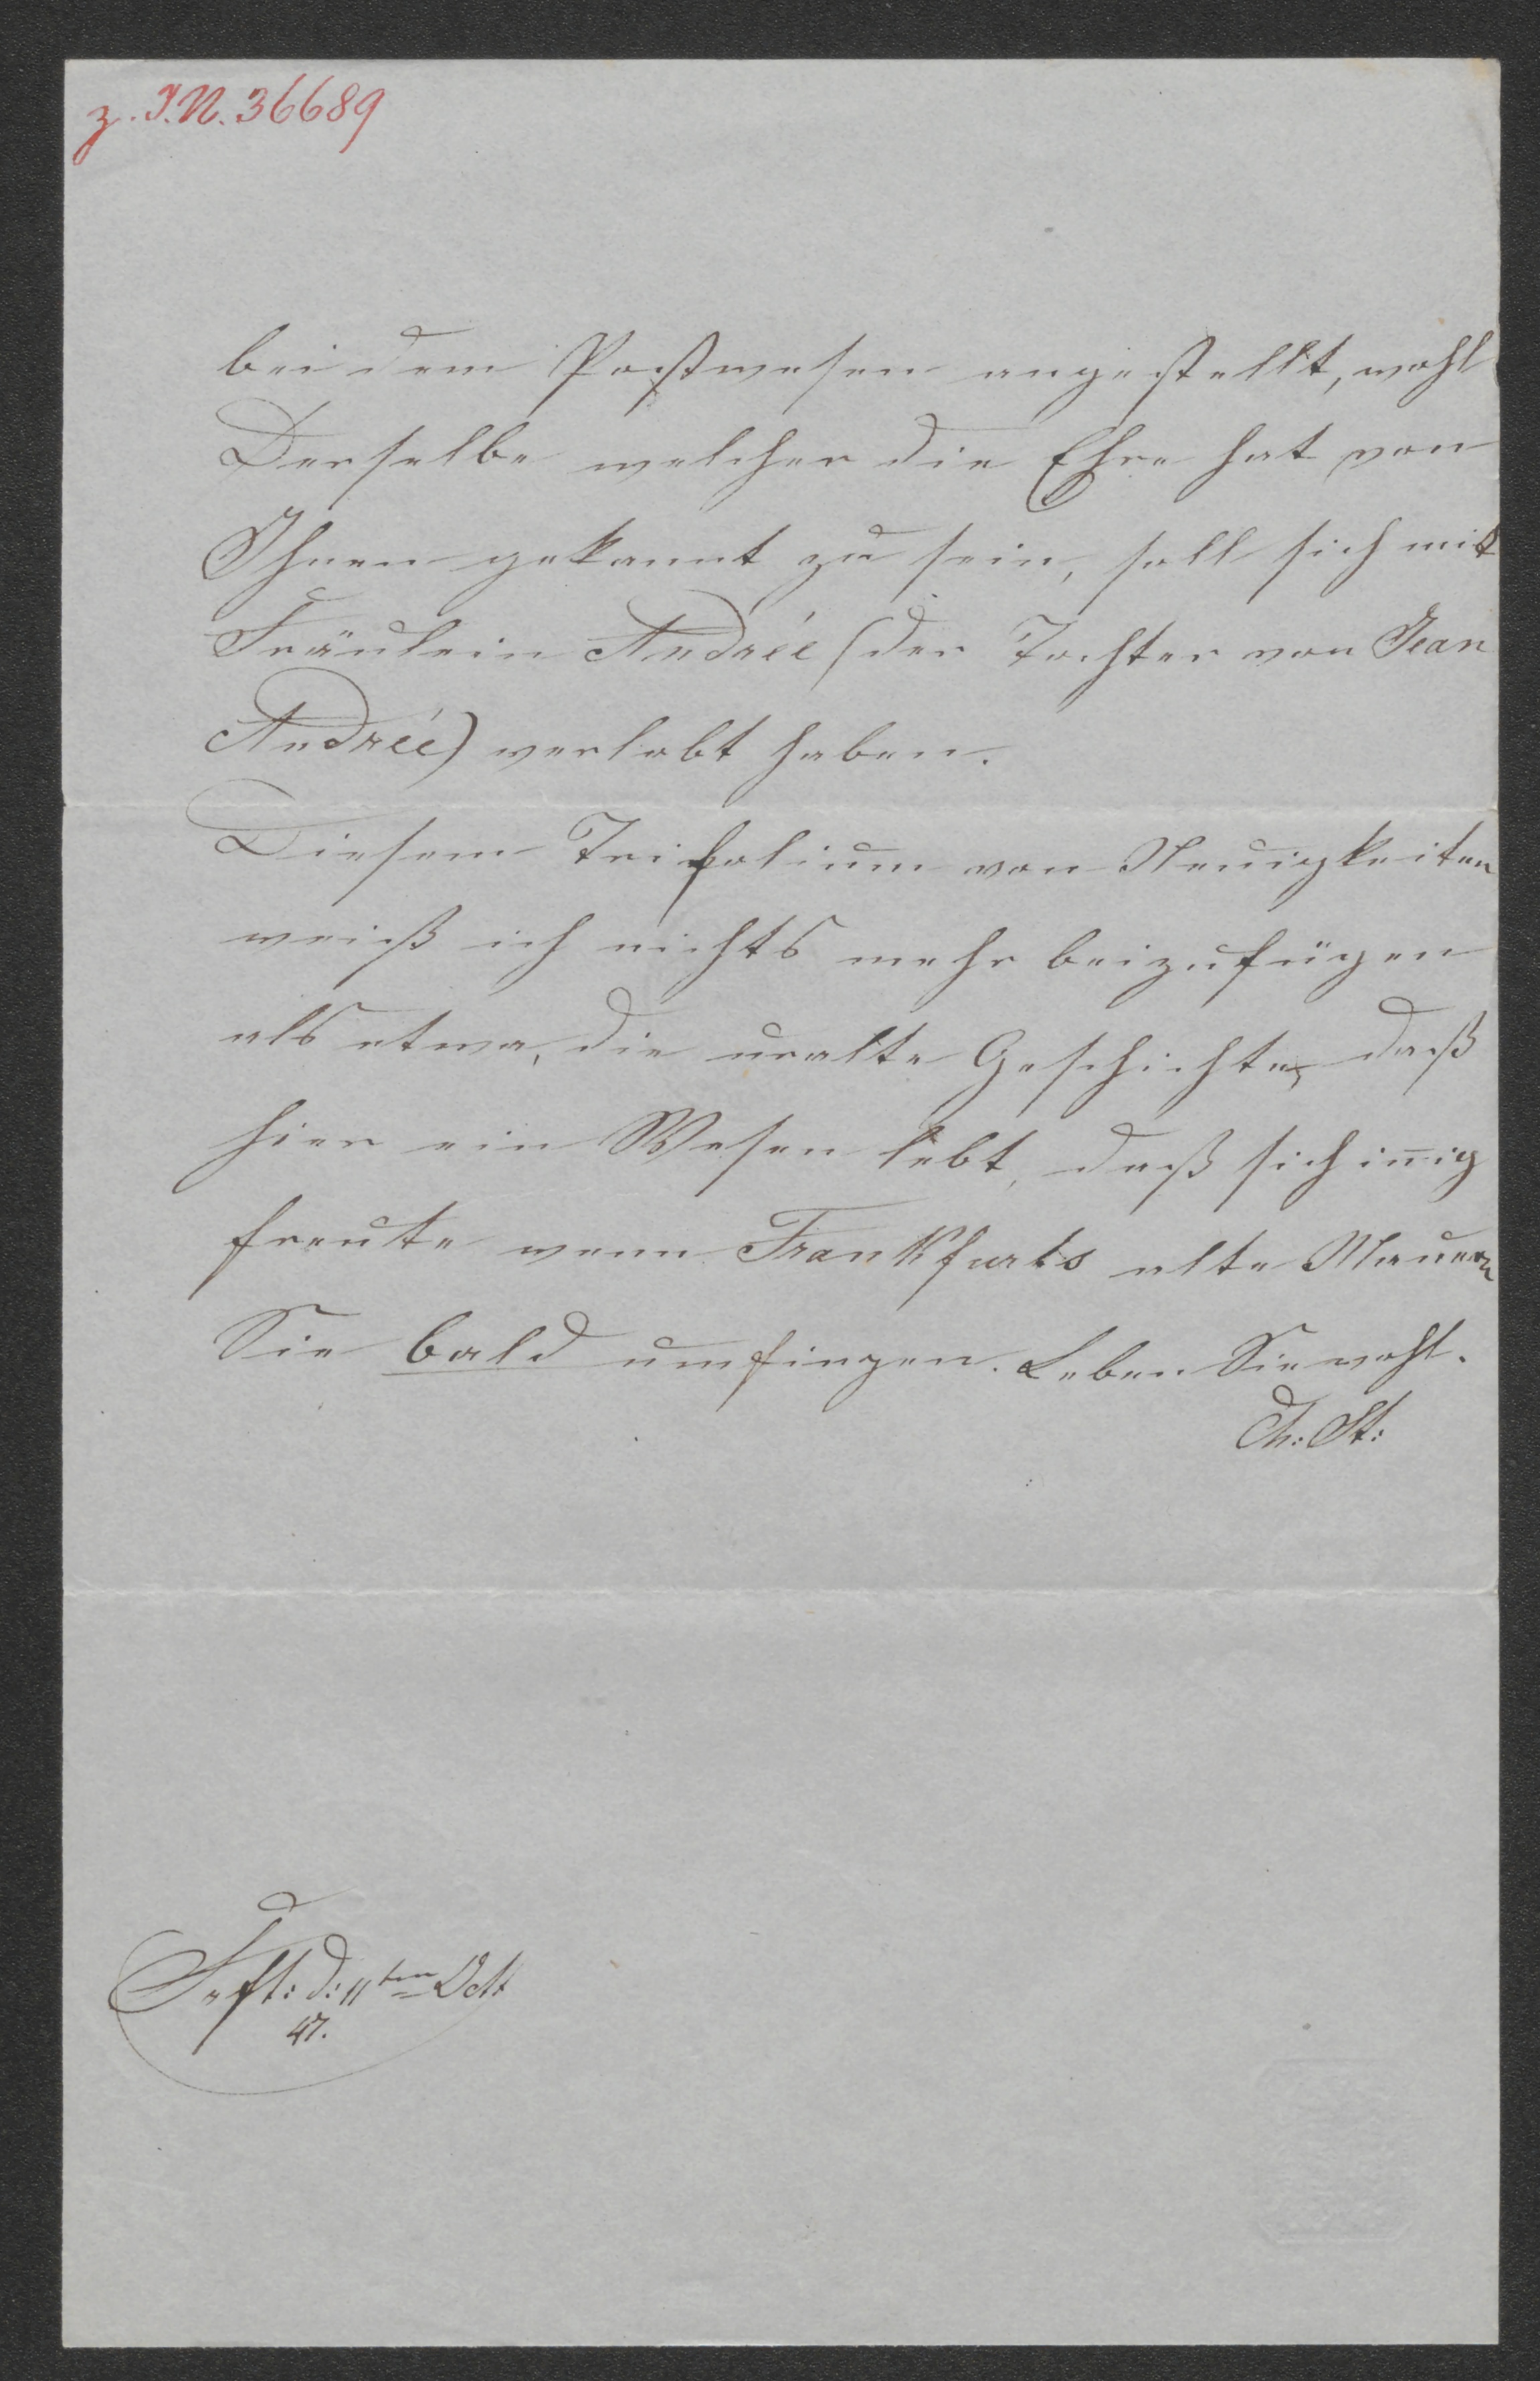 z. I.N. 36689
bei dem Postwesen angestellt, wohl
Derselbe welcher die Ehre hat von
Ihnen gekannt zu sein, soll sich mit
Fräulein Andrée (der Tochter von Jean
Andrée) verlobt haben.
Diesem Trifolium von Neuigkeiten
weiß ich nichts mehr beizufügen
als etwa, die uralte Geschichte, daß
hier ein Wesen lebt, daß sich iñig
freute wenn Frankfurts alte Mauern
Sie bald umfingen. Leben Sie wohl.
Th: St:
Frft: d: 11ten Oct
47.